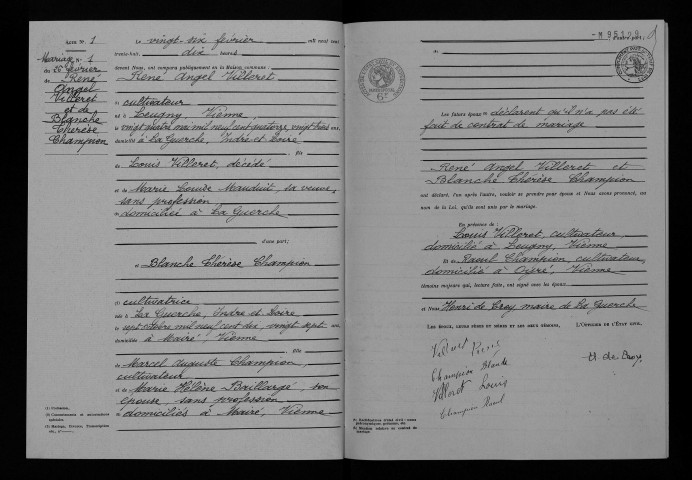 ACTE N° 1
Mariage N° 1
du 26 février
de René
Angel
Villeret
et de
Blanche
Thérèse
Champion
Le vingt-six février mil neuf cent
trente-huit, dix heures
devant Nous, ont comparu publiquement en la Maison commune :
René Angel Villeret
(1) cultivateur
né à Leugny, Vienne
le vingt quatre mai mil neuf cent quatorze, vingt trois ans,
domicilié à La Guerche, Indre et Loire
fils
de Louis Villeret, décédé
et de Marie Louise Mauduit, sa veuve,
sans profession,
domiciliée à La Guerche
d'une part;
et Blanche Thérèse Champion
(1) cultivatrice
née à La Guerche, Indre et Loire
le sept octobre mil neuf cent dix, vingt sept ans,
domiciliée à Mairé, Vienne
fille
de Marcel Auguste Champion,
cultivateur
et de Marie Hélène Baillargé, son
épouse, sans profession,
domiciliés à Mairé, Vienne
(1) Profession.
d'autre part,
Les futurs époux déclarent qu'il n'a pas été
fait de contrat de mariage
René Angel Villeret et
Blanche Thérèse Champion
ont déclaré, l'un après l'autre, vouloir se prendre pour époux et Nous avons prononcé, au
nom de la Loi, qu'ils sont unis par le mariage.
En présence de :
Louis Villeret, cultivateur,
domicilié à Leugny, Vienne
Et de Raoul Champion, cultivateur,
domicilié à Oyré, Vienne
témoins majeurs qui, lecture faite, ont signé avec les époux
et Nous Henri de Croy maire de La Guerche
LES ÉPOUX, LEURS PÈRES ET MÈRES ET LES DEUX TÉMOINS,
L'OFFICIER DE L'ÉTAT CIVIL,
Villeret René
Champion Blanche
Villeret Louis
Champion Raoul
H. de Croy